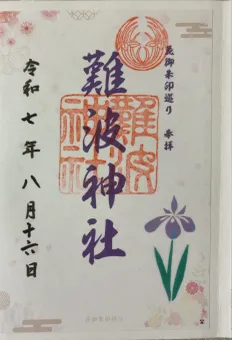 花御朱印巡り 奉拝
難波神社
難波神社
令和七年八月十六日